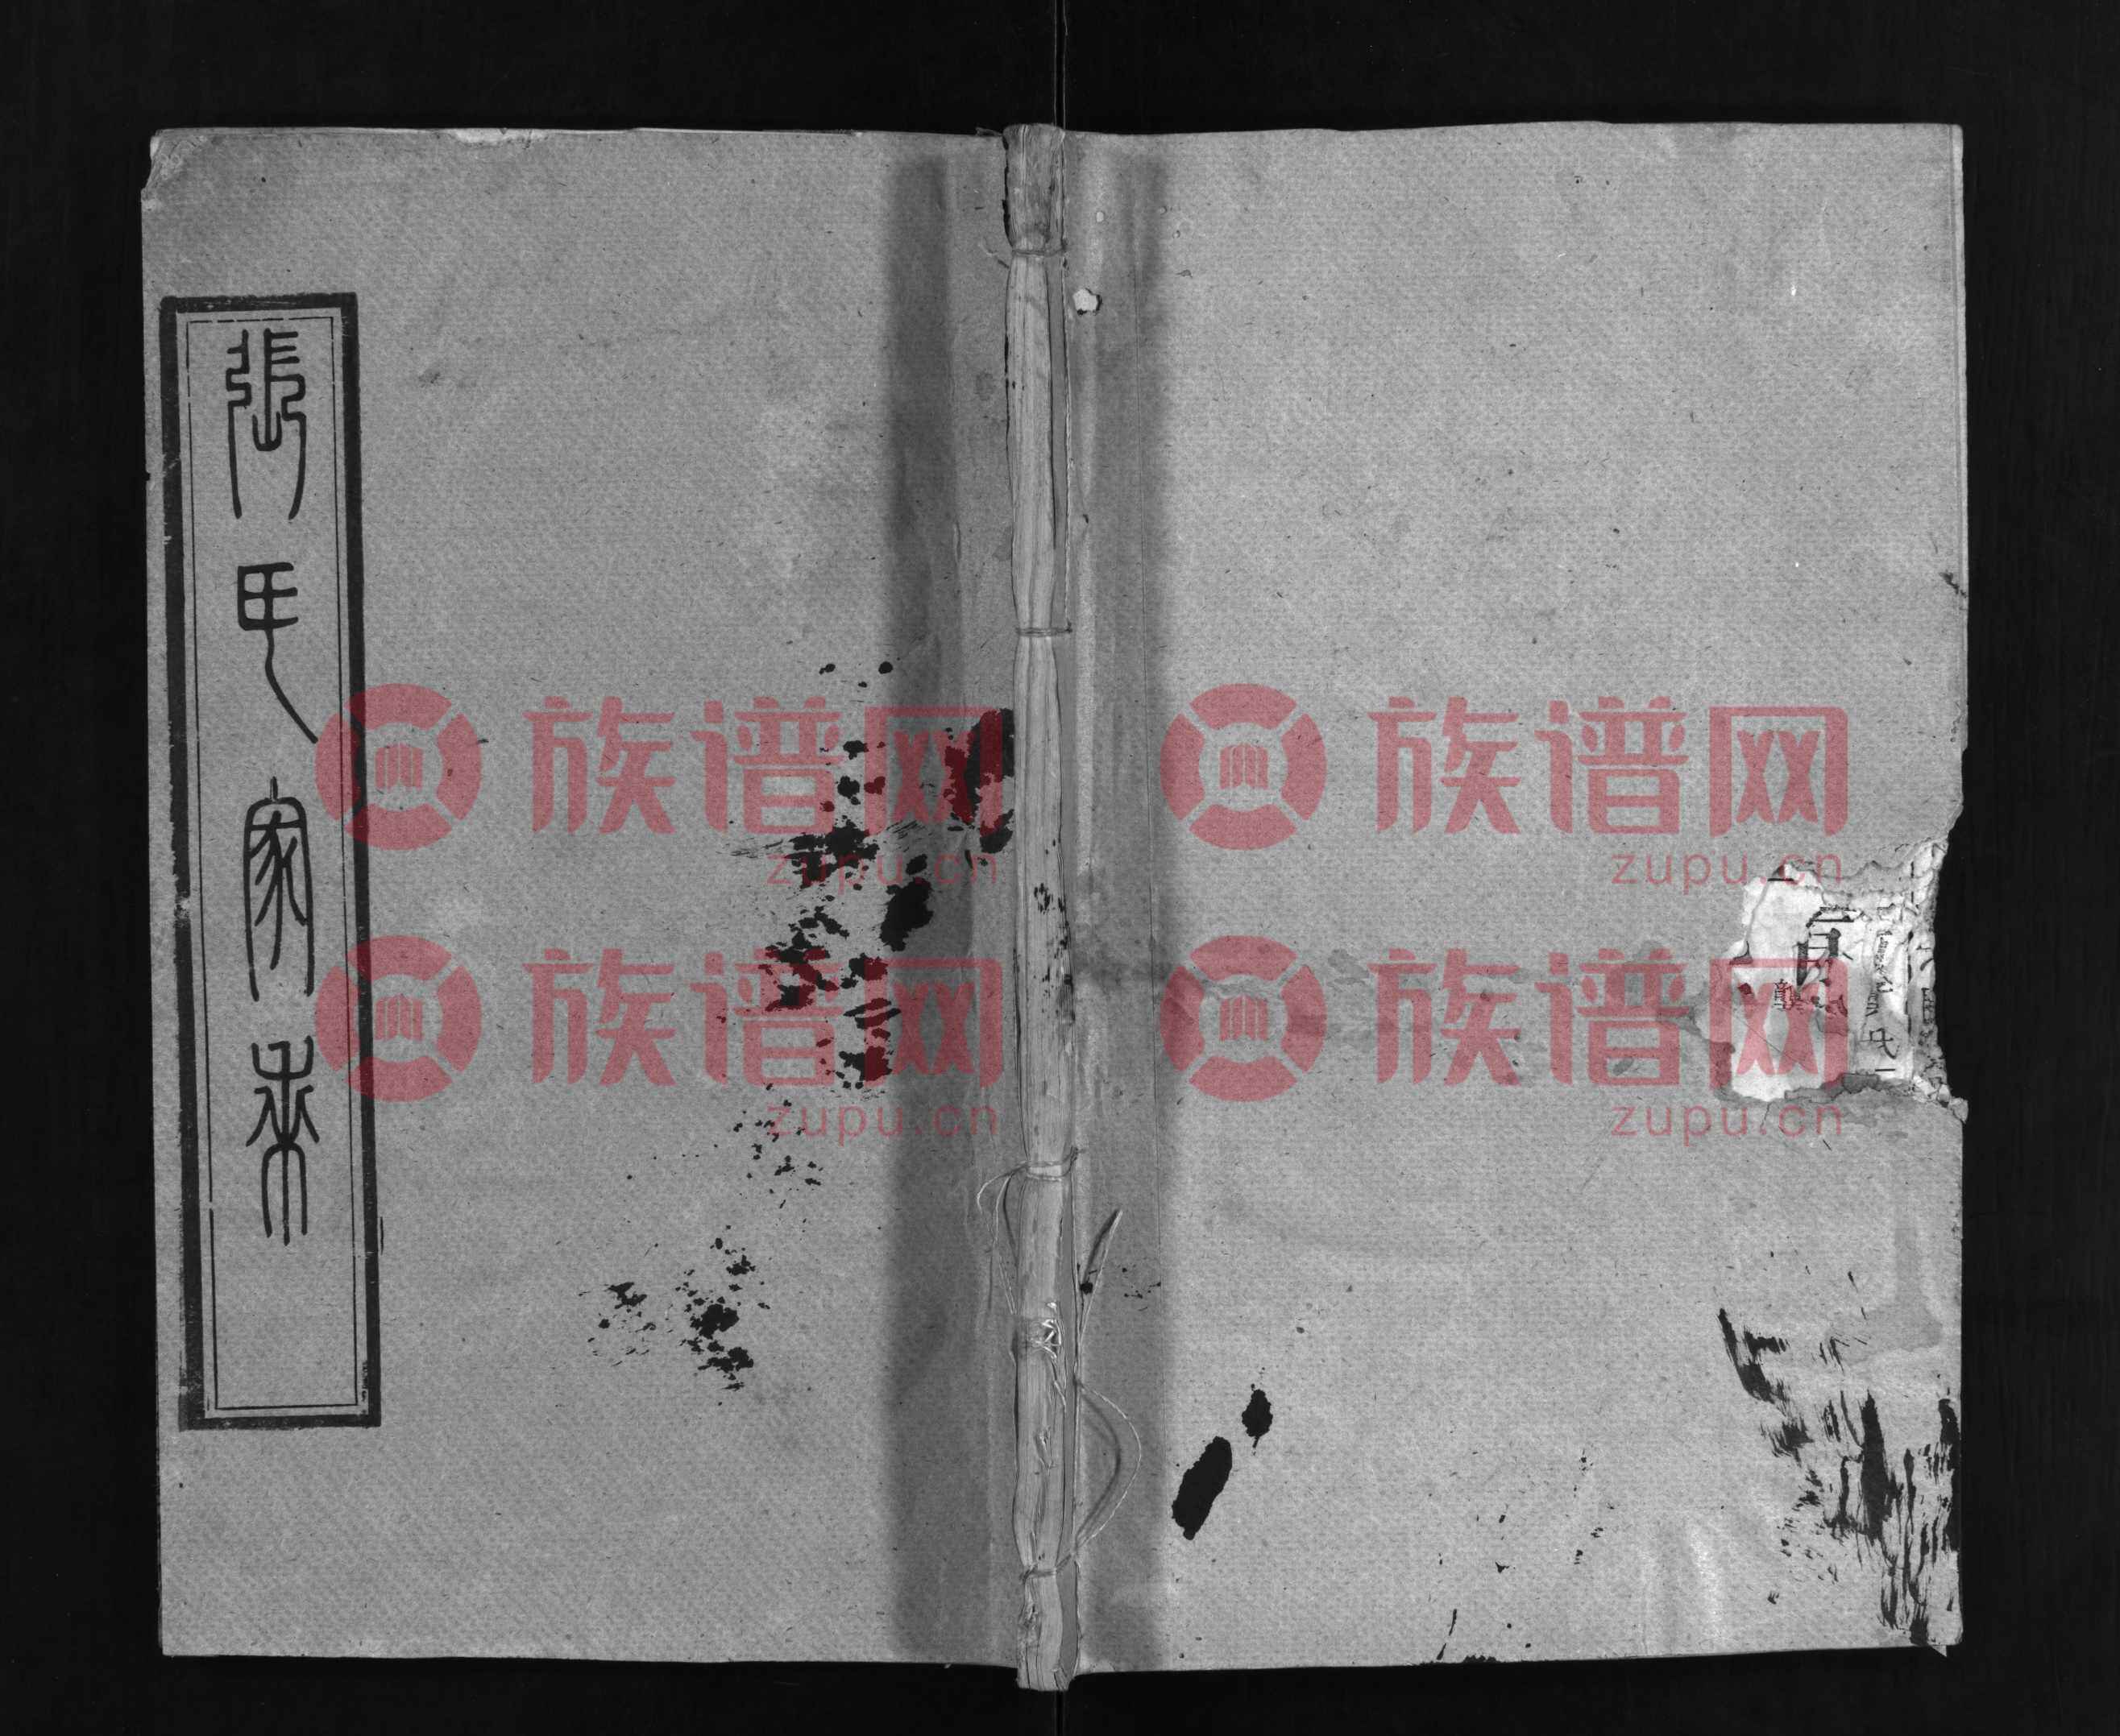 張氏家乘
族谱网
zupu.cn
族谱网
zupu.cn
族谱网
zupu.cn
族谱网
zupu.cn
氏